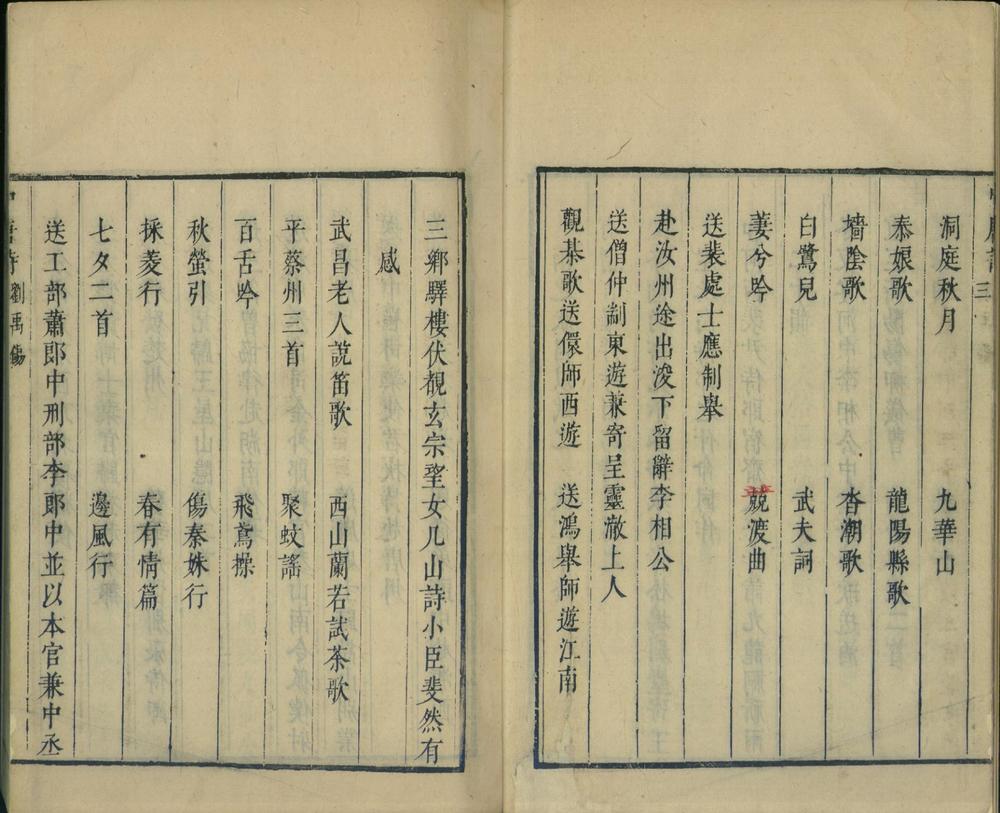 洞庭秋月 九華山
泰娘歌 龍陽縣歌
墻陰歌 沓潮歌
白鷺兒 武夫詞
萋兮吟 競渡曲
送裴處士應制舉
赴汝州途出浚下留辭李相公
送僧仲剬東遊兼寄呈靈澈上人
觀棊歌送儇師西遊 送鴻舉師遊江南
三鄉驛樓伏覩玄宗望女几山詩小臣斐然有
感
武昌老人說笛歌 西山蘭若試茶歌
平蔡州三首 聚蚊謠
百舌吟 飛鳶操
秋螢引 傷秦姝行
採菱行 春有情篇
七夕二首 邊風行
送工部蕭郎中刑部李郎中並以本官兼中丞
劉禹錫